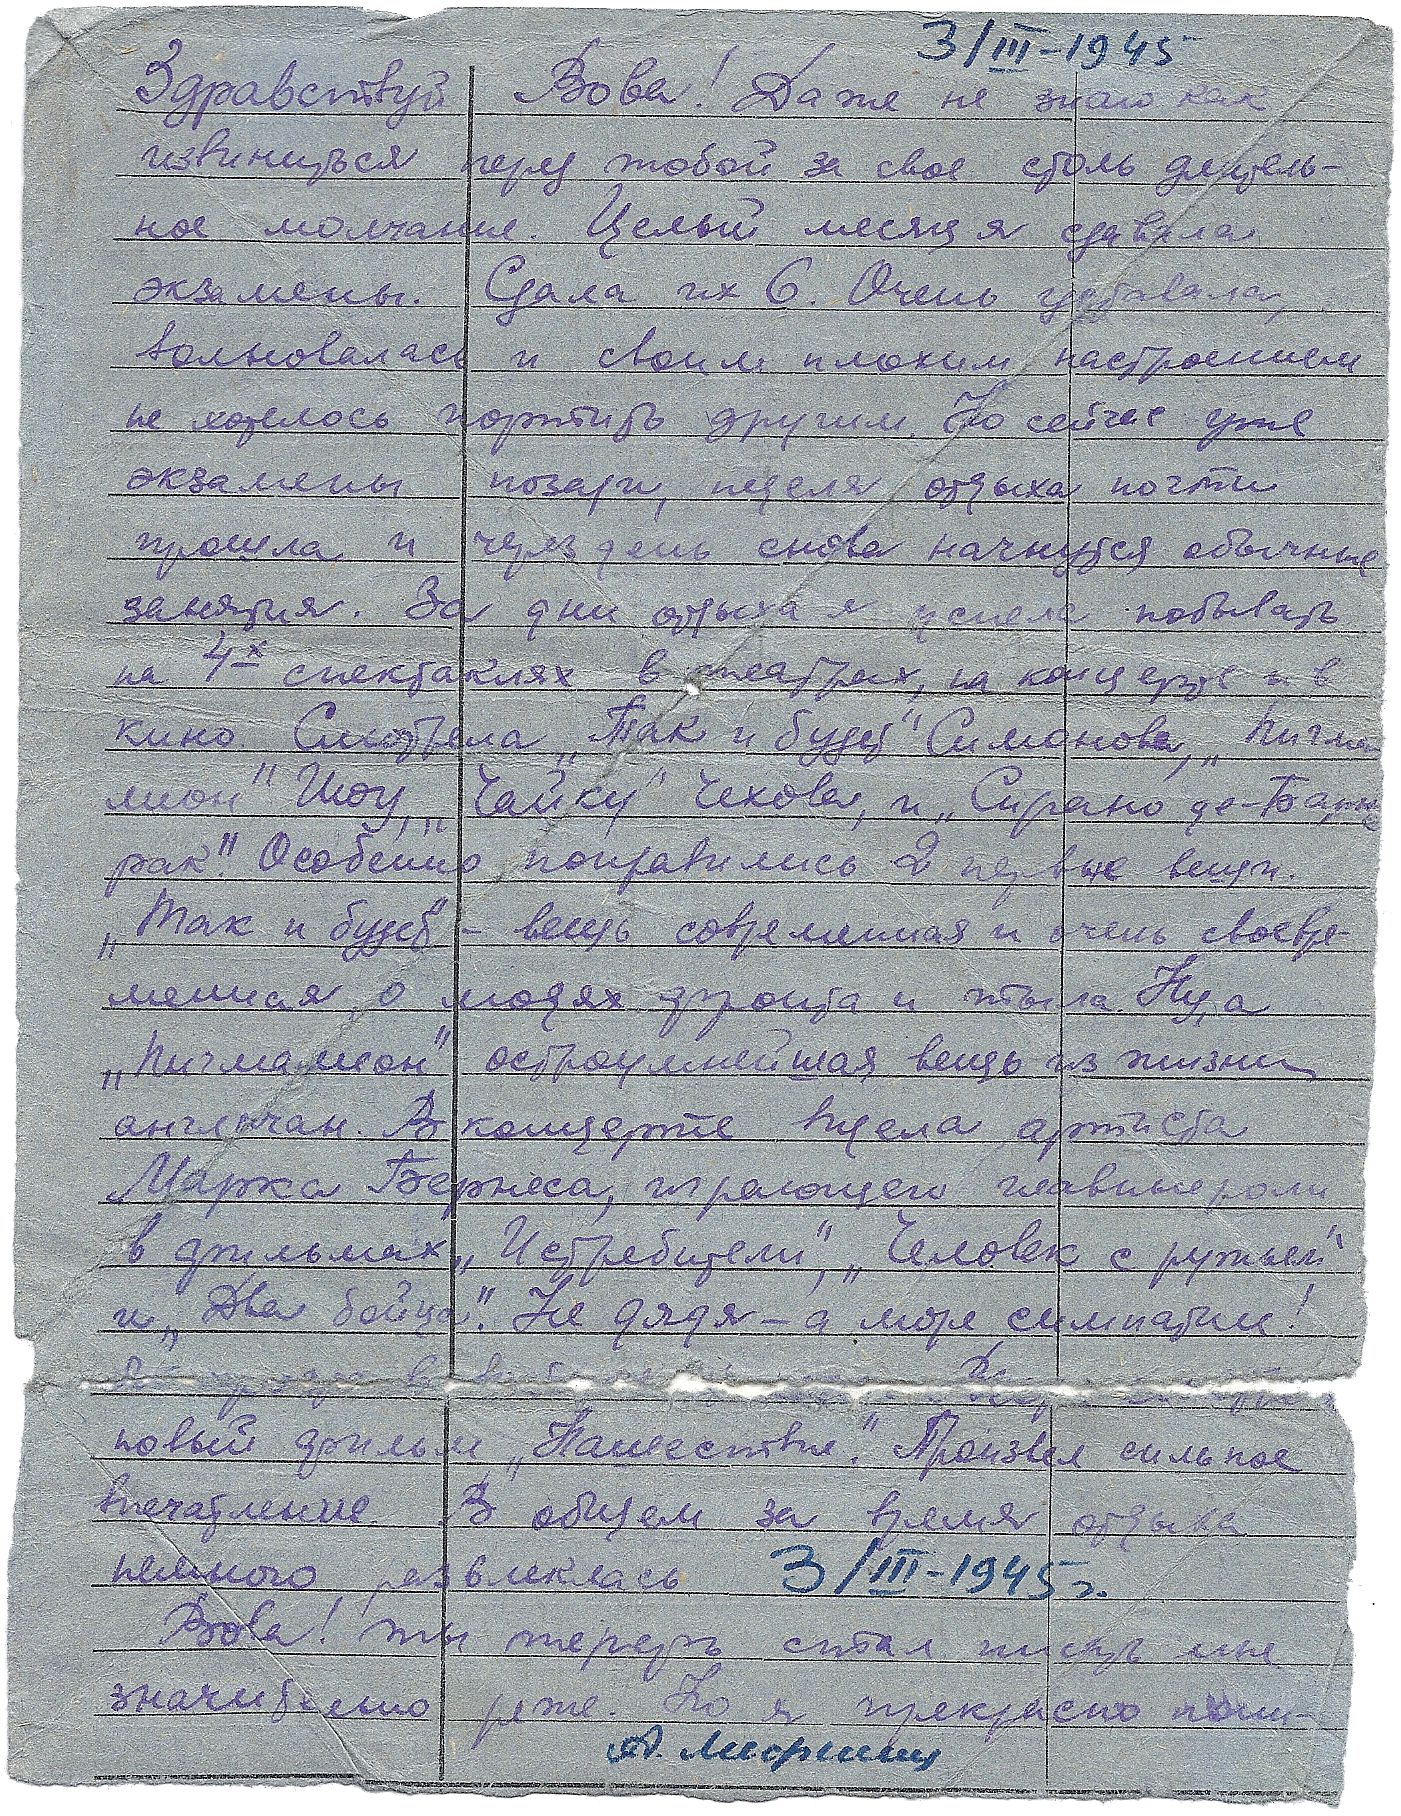 3/III-1945
Здравствуй Вова! Даже не знаю как
извиниться перед тобой за свое столь длитель-
ное молчание. Целый месяц я сдавала
экзамены. Сдала их 6. Очень уставала,
волновалась и своим плохим настроением
не хотелось портить другим. Но сейчас уже
экзамены позади, неделя отдыха почти
прошла и через день снова начнутся обычные
занятия. За дни отдыха я успела побывать
на 4х спектаклях в театрах, на концерте и в
кино. Смотрела „Так и будет" Симонова, „Пигма
лион" Шоу, „Чайку" Чехова, и „Сирано де-Берже
рак". Особенно понравились 2 первые вещи.
„Так и будет" – вещь современная и очень своевре-
менная, о людях фронта и тыла. Ну, а
„Пигмалион" остроумнейшая вещь из жизни
англичан. В концерте видела артиста
Марка Бернеса, играющего главные роли
в фильмах „Истребители", „Человек с ружьем"
и „Два бойца". Не дядя – а море симпатии!
новый фильм „Нашествие". Произвел сильное
впечатление. В общем за время отдыха
немного развлеклась 3/III-1945г.
Вова! ты теперь стал писать мне
значительно реже. Но я прекрасно пони-